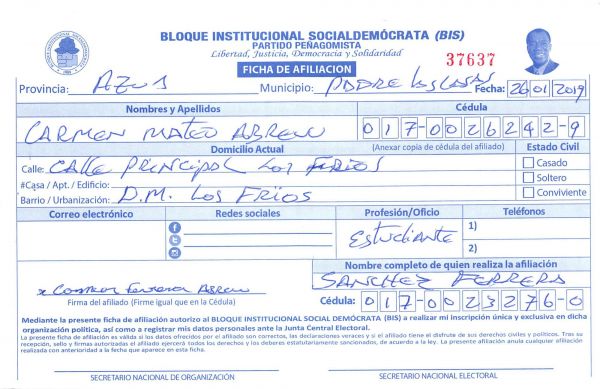 BLOQUE INSTITUCIONAL SOCIALDEMÓCRATA (BIS)
PARTIDO PEÑAGOMISTA
Libertad, Justicia, Democracia y Solidaridad
37637
FICHA DE AFILIACION
Provincia: AZUA Municipio: PADRE LAS CASAS Fecha: 26 01 2019
Nombres y Apellidos Cédula
CARMEN MATEO ABREU 017-0026242-9
Domicilio Actual (Anexar copia de cédula del afiliado) Estado Civil
Calle: CALLE PRINCIPAL LOS FRIOS Casado
#Casa / Apt. / Edificio: Soltero
Barrio / Urbanización: D.M. LOS FRIOS Conviviente
Correo electrónico Redes sociales Profesión/Oficio Teléfonos
Estudiante 1)
2)
Nombre completo de quien realiza la afiliación
SANCHEZ FERRERA
Firma del afiliado (Firme igual que en la Cédula) Cédula: 017-0023276-0
Mediante la presente ficha de afiliación autorizo al BLOQUE INSTITUCIONAL SOCIAL DEMÓCRATA (BIS) a realizar mi inscripción única y exclusiva en dicha
organización política, así como a registrar mis datos personales ante la Junta Central Electoral.
La presente ficha de afiliación es válida si los datos ofrecidos por el afiliado son correctos, las declaraciones veraces y si el afiliado tiene el disfrute de sus derechos civiles y políticos. Tras su
recepción, sello y firmas autorizadas el afiliado ejercerá todos los derechos y los deberes estatutariamente sancionados, de acuerdo a la ley. La presente afiliación anula cualquier afiliación
realizada con anterioridad a la fecha que aparece en esta ficha.
SECRETARIO NACIONAL DE ORGANIZACIÓN SECRETARIO NACIONAL ELECTORAL